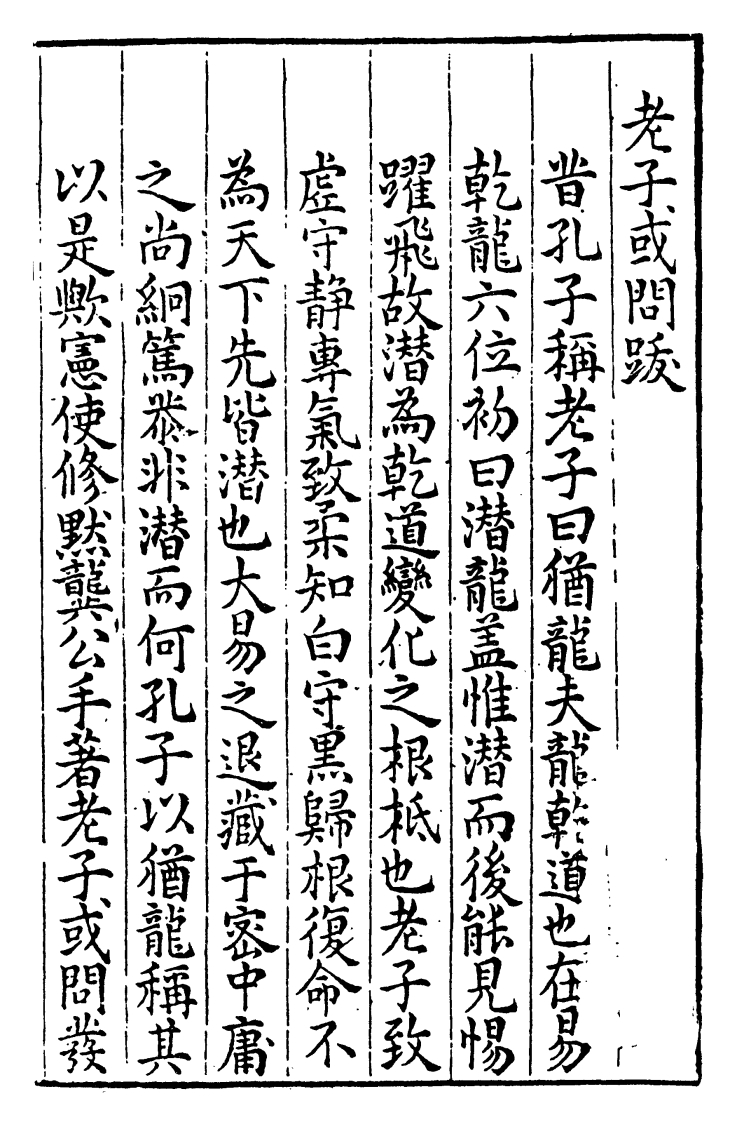 老子或問跋
昔孔子稱老子曰猶龍夫龍乾道也在易
乾龍六位初曰潛龍盖惟潛而後能見惕
躍飛故潛為乾道變化之根柢也老子致
虛守静專氣致柔知白守黒歸根復命不
為天下先皆潛也大易之退藏于密中庸
之尚絅篤恭非潛而何孔子以猶龍稱其
以是歟憲使修默龔公手著老子或問發